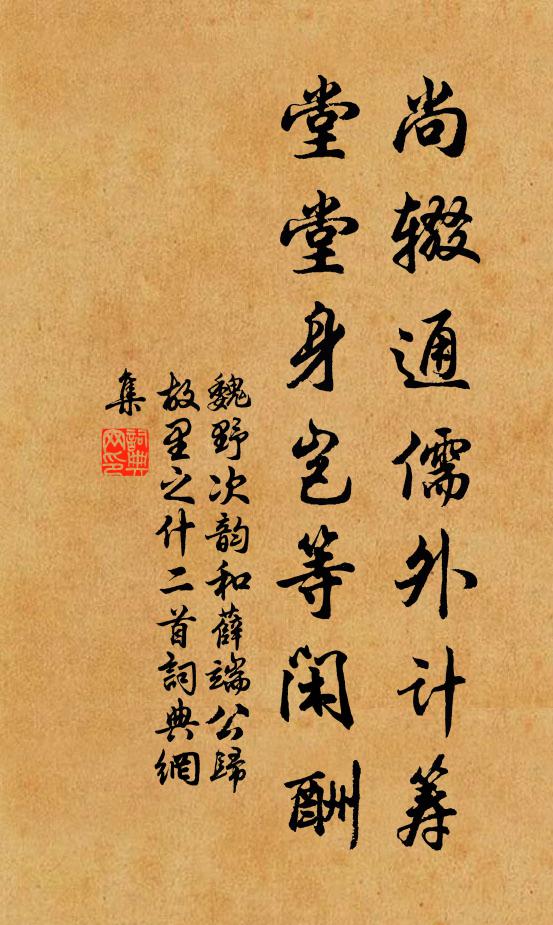 尚辍通儒外计筹
堂堂身岂等闲酬
魏野次韵和薛端公歸
故里之什二首詞典網
集
詞典网印